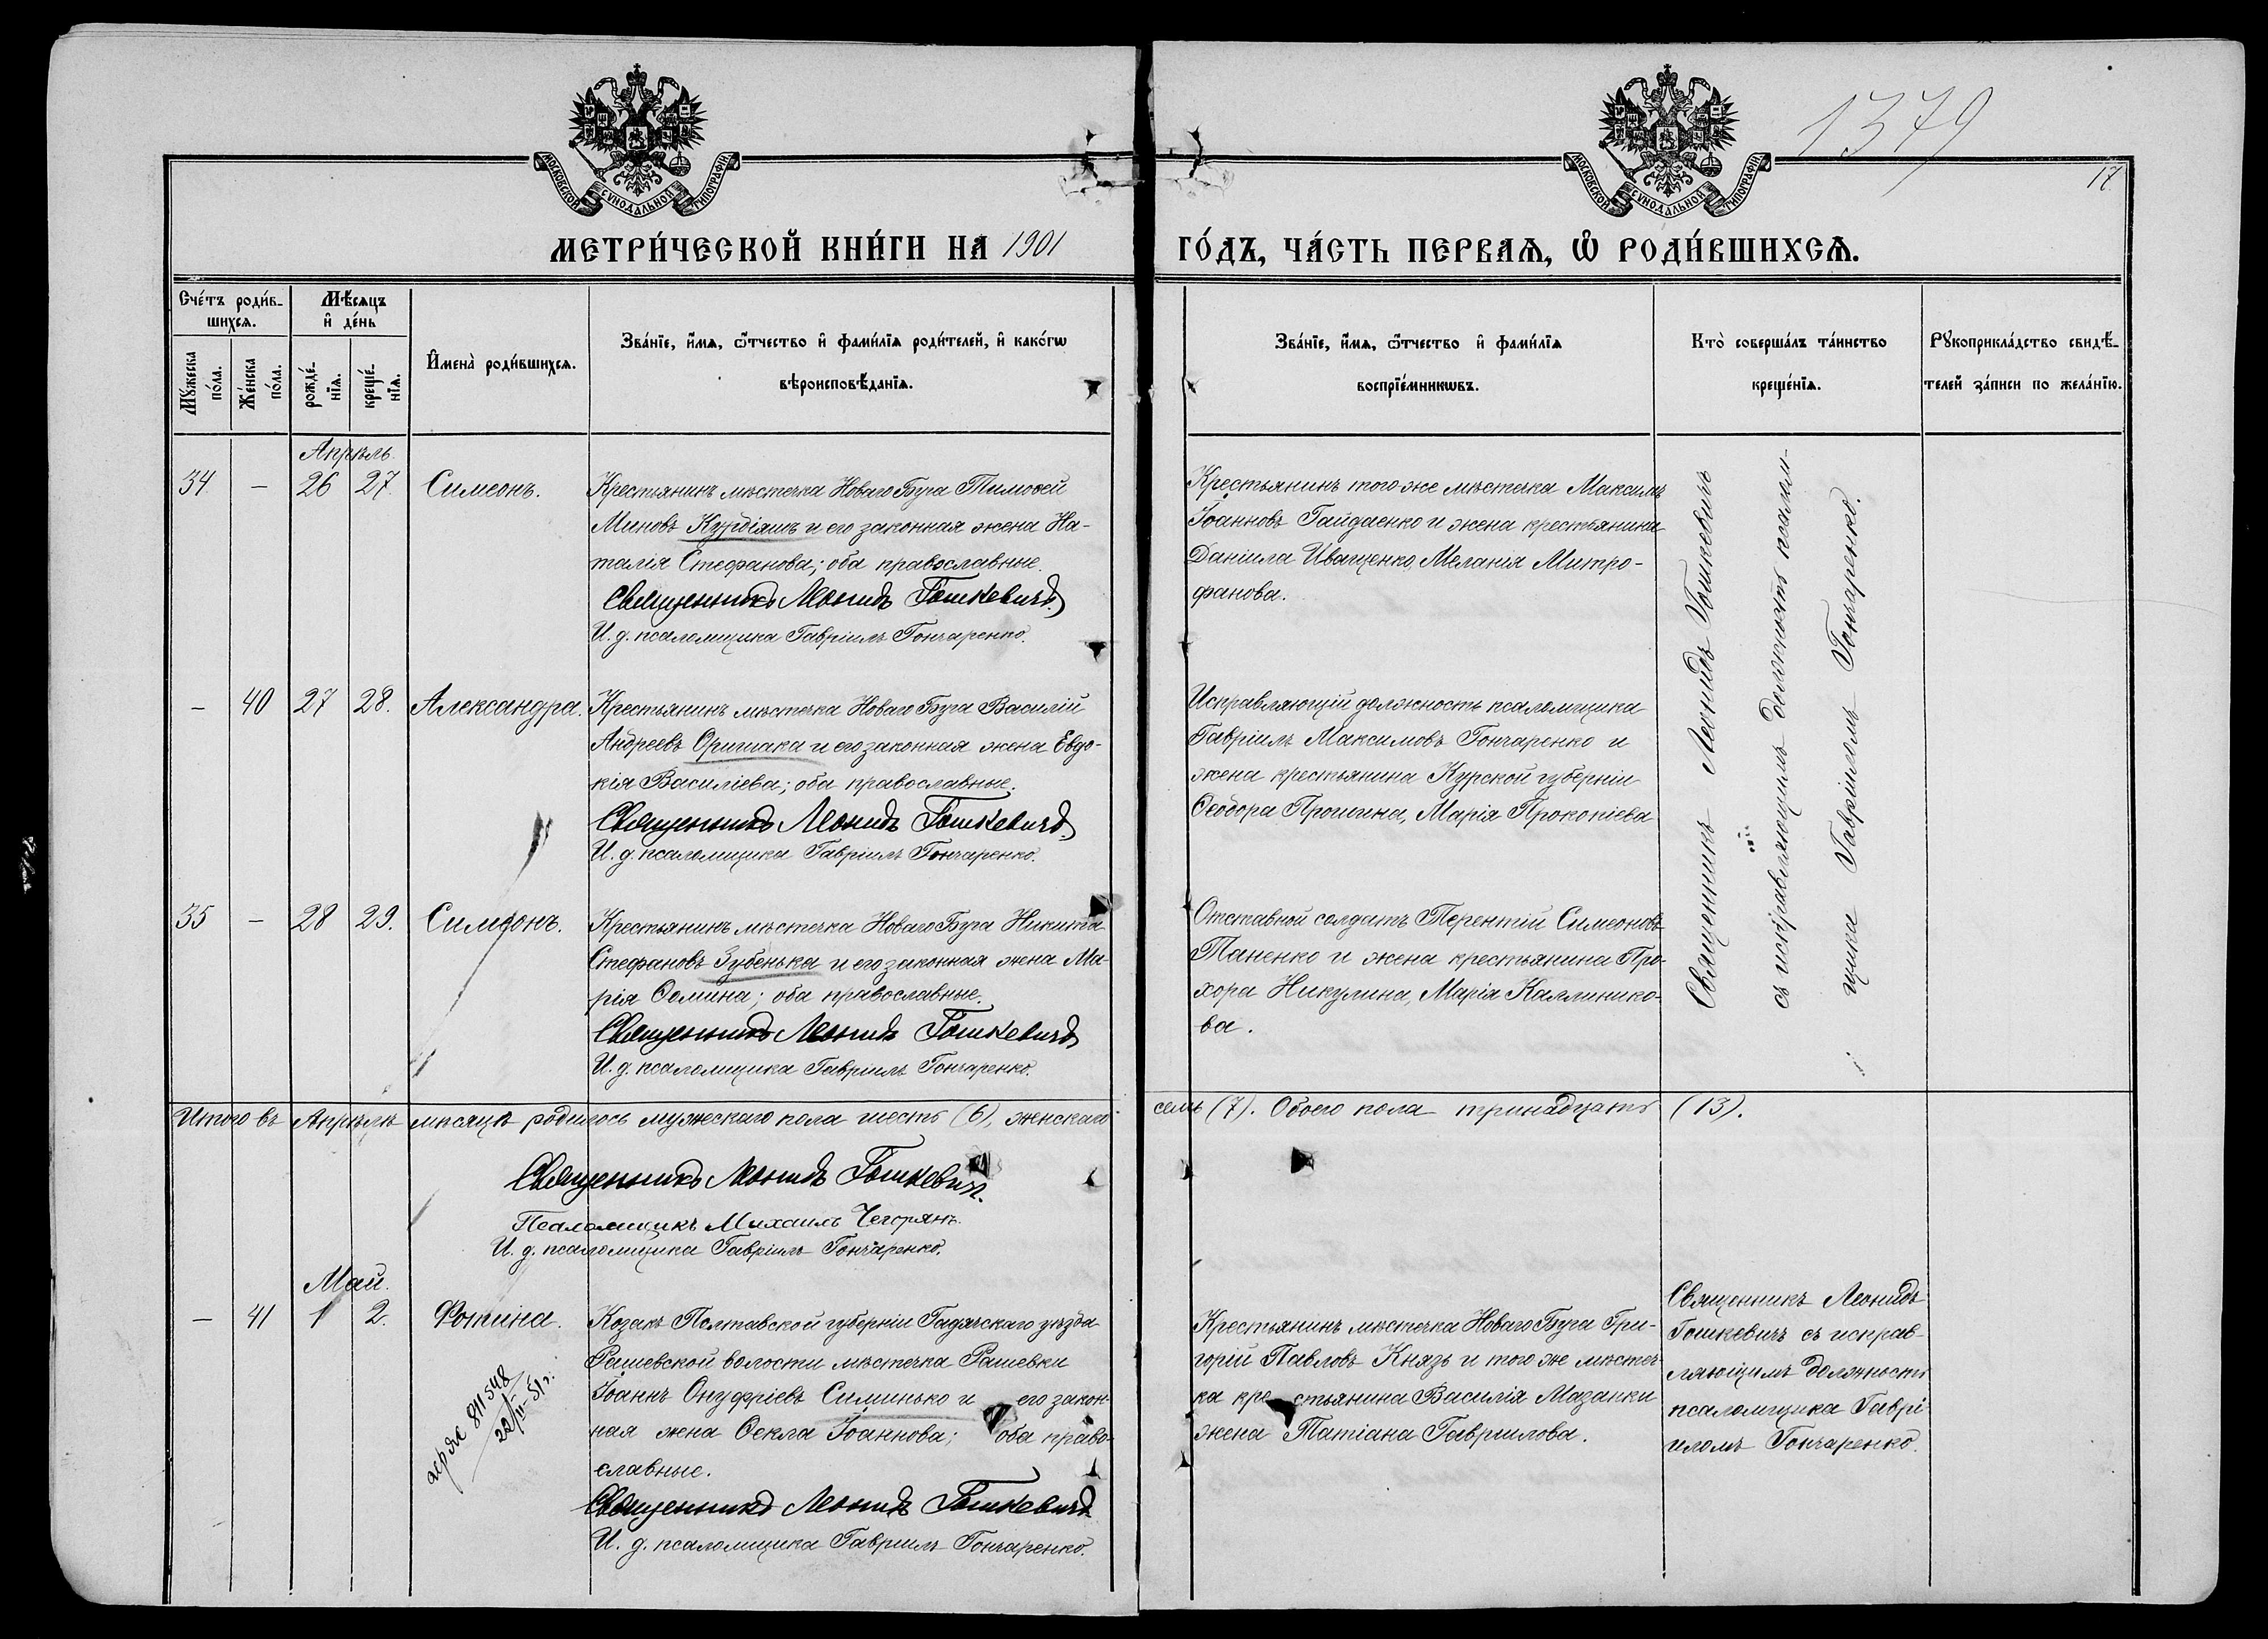 1379
17
МОСКОВСКОЙ СѴНОДАЛЬНОЙ ТИПОГРАФІИ
МОСКОВСКОЙ СѴНОДАЛЬНОЙ ТИПОГРАФІИ
МЕТРИ́ЧЕСКОЙ КНИ́ГИ НА 1901 ГО́ДЪ, ЧА́СТЬ ПЕРВАѦ, Ѽ РОДИ́ВШИХСѦ.
Сче́тъ роди́в-
шихсѧ.
Мѣ́сѧцъ
и҆ де́нь
Мꙋ́жеска
по́ла.
Же́нска
по́ла.
рожде́-
нїѧ.
креще́-
нїѧ.
И҆мена̀ роди́вшихсѧ.
Зва́нїе, и҆́мѧ, ѻ҆́тчество и҆ фами́лїѧ роди́телей, и҆ како́гѡ
вѣроисповѣ́данїѧ.
Зва́нїе, и҆́мѧ, ѻ҆́тчество и҆ фами́лїѧ
воспрїе́мникѡвъ.
Кто̀ соверша́лъ та́инство
креще́нїѧ.
Рꙋкоприкла́дство свидѣ́-
телей за́писи по жела́нїю.
Апрѣль.
34 — 26 27 Симеонъ.
Крестьянинъ мѣстечка Новаго Буга Тимоѳей
Миновъ Курдіяшъ и его законная жена На-
талія Стефанова; оба православные.
Священникъ Леонидъ Гошкевичъ
И. д. псаломщика Гавріилъ Гончаренко.
Крестьянинъ того же мѣстечка Максимъ
Іоанновъ Гайдаенко и жена крестьянина
Даніила Иващенко, Меланія Митро-
фанова.
Священникъ Леонидъ Гошкевичъ
съ исправляющимъ должность псалом-
щика Гавріиломъ Гончаренко.
— 40 27 28. Александра.
Крестьянинъ мѣстечка Новаго Буга Василій
Андреевъ Оришака и его законная жена Евдо-
кія Василіева; оба православные.
Священникъ Леонидъ Гошкевичъ
И. д. псаломщика Гавріилъ Гончаренко.
Исправляющій должность псаломщика
Гавріилъ Максимовъ Гончаренко и
жена крестьянина Курской губерніи
Ѳеодора Прошина, Марія Прокопіева
35 — 28 29. Симеонъ.
Крестьянинъ мѣстечка Новаго Буга Никита
Стефановъ Зубенька и его законная жена Ма-
рія Ѳомина; оба православные.
Священникъ Леонидъ Гошкевичъ
И. д. псаломщика Гавріилъ Гончаренко.
Отставной солдатъ Терентій Симеоновъ
Таненко и жена крестьянина Про-
хора Никулина, Марія Каллинико-
ва.
Итого въ Апрѣлѣ мѣсяцѣ родилось мужескаго пола шесть (6), женскаго семь (7). Обоего пола тринадцать (13).
Священникъ Леонидъ Гошкевичъ.
Псаломщикъ Михаилъ Чегорянъ.
И. д. псаломщика Гавріилъ Гончаренко.
Май.
— 41 1 2. Фотина.
811548
22/IV-51 г.
Козакъ Полтавской губерніи Гадячскаго уѣзда
Рашевской волости мѣстечка Рашевки
Іоаннъ Онуфріевъ Симинько и его закон-
ная жена Ѳекла Іоаннова; оба право-
славные.
Священникъ Леонидъ Гошкевичъ
И. д. псаломщика Гавріилъ Гончаренко.
Крестьянинъ мѣстечка Новаго Буга Гри-
горій Павловъ Князь и того же мѣстеч-
ка крестьянина Василія Мазанки
жена Татіана Гавриилова.
Священникъ Леонидъ
Гошкевичъ съ исправ-
ляющимъ должность
псаломщика Гаврі-
иломъ Гончаренко.